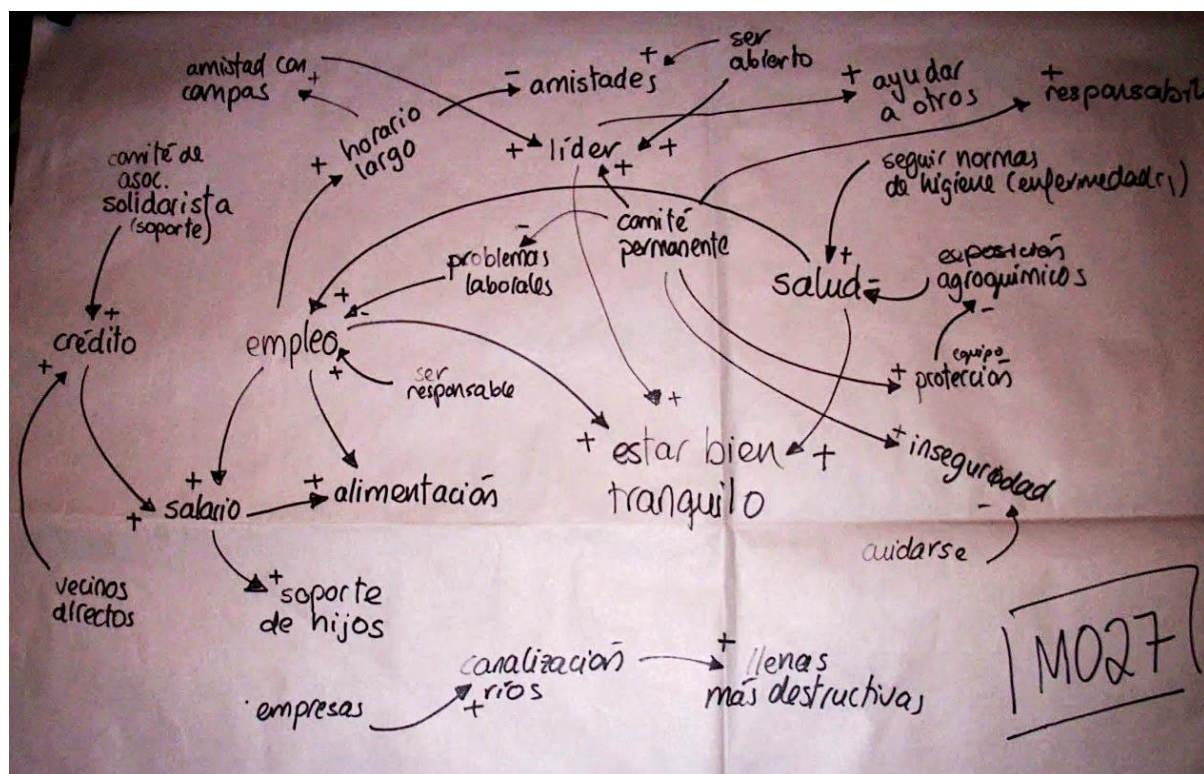 amistad con
campas
+
-
amistades
+
ser
abierto
+
ayudar
a otros
+
responsabil
+
horario
largo
+
líder
+
+
comité de
asoc.
solidarista
(soporte)
seguir normas
de higiene (enfermedades)
-
problemas
laborales
comité
permanente
+
salud -
exposición
agroquímicos
-
+
crédito
+
+
-
empleo
+
ser
responsable
equipo
+ protección
+
+
estar bien
tranquilo
+
+
inseguridad
-
cuidarse
+
salario
+
+
alimentación
vecinos
directos
+
soporte
de hijos
canalización
ríos
+
empresas
+
llenas
más destructivas
M027